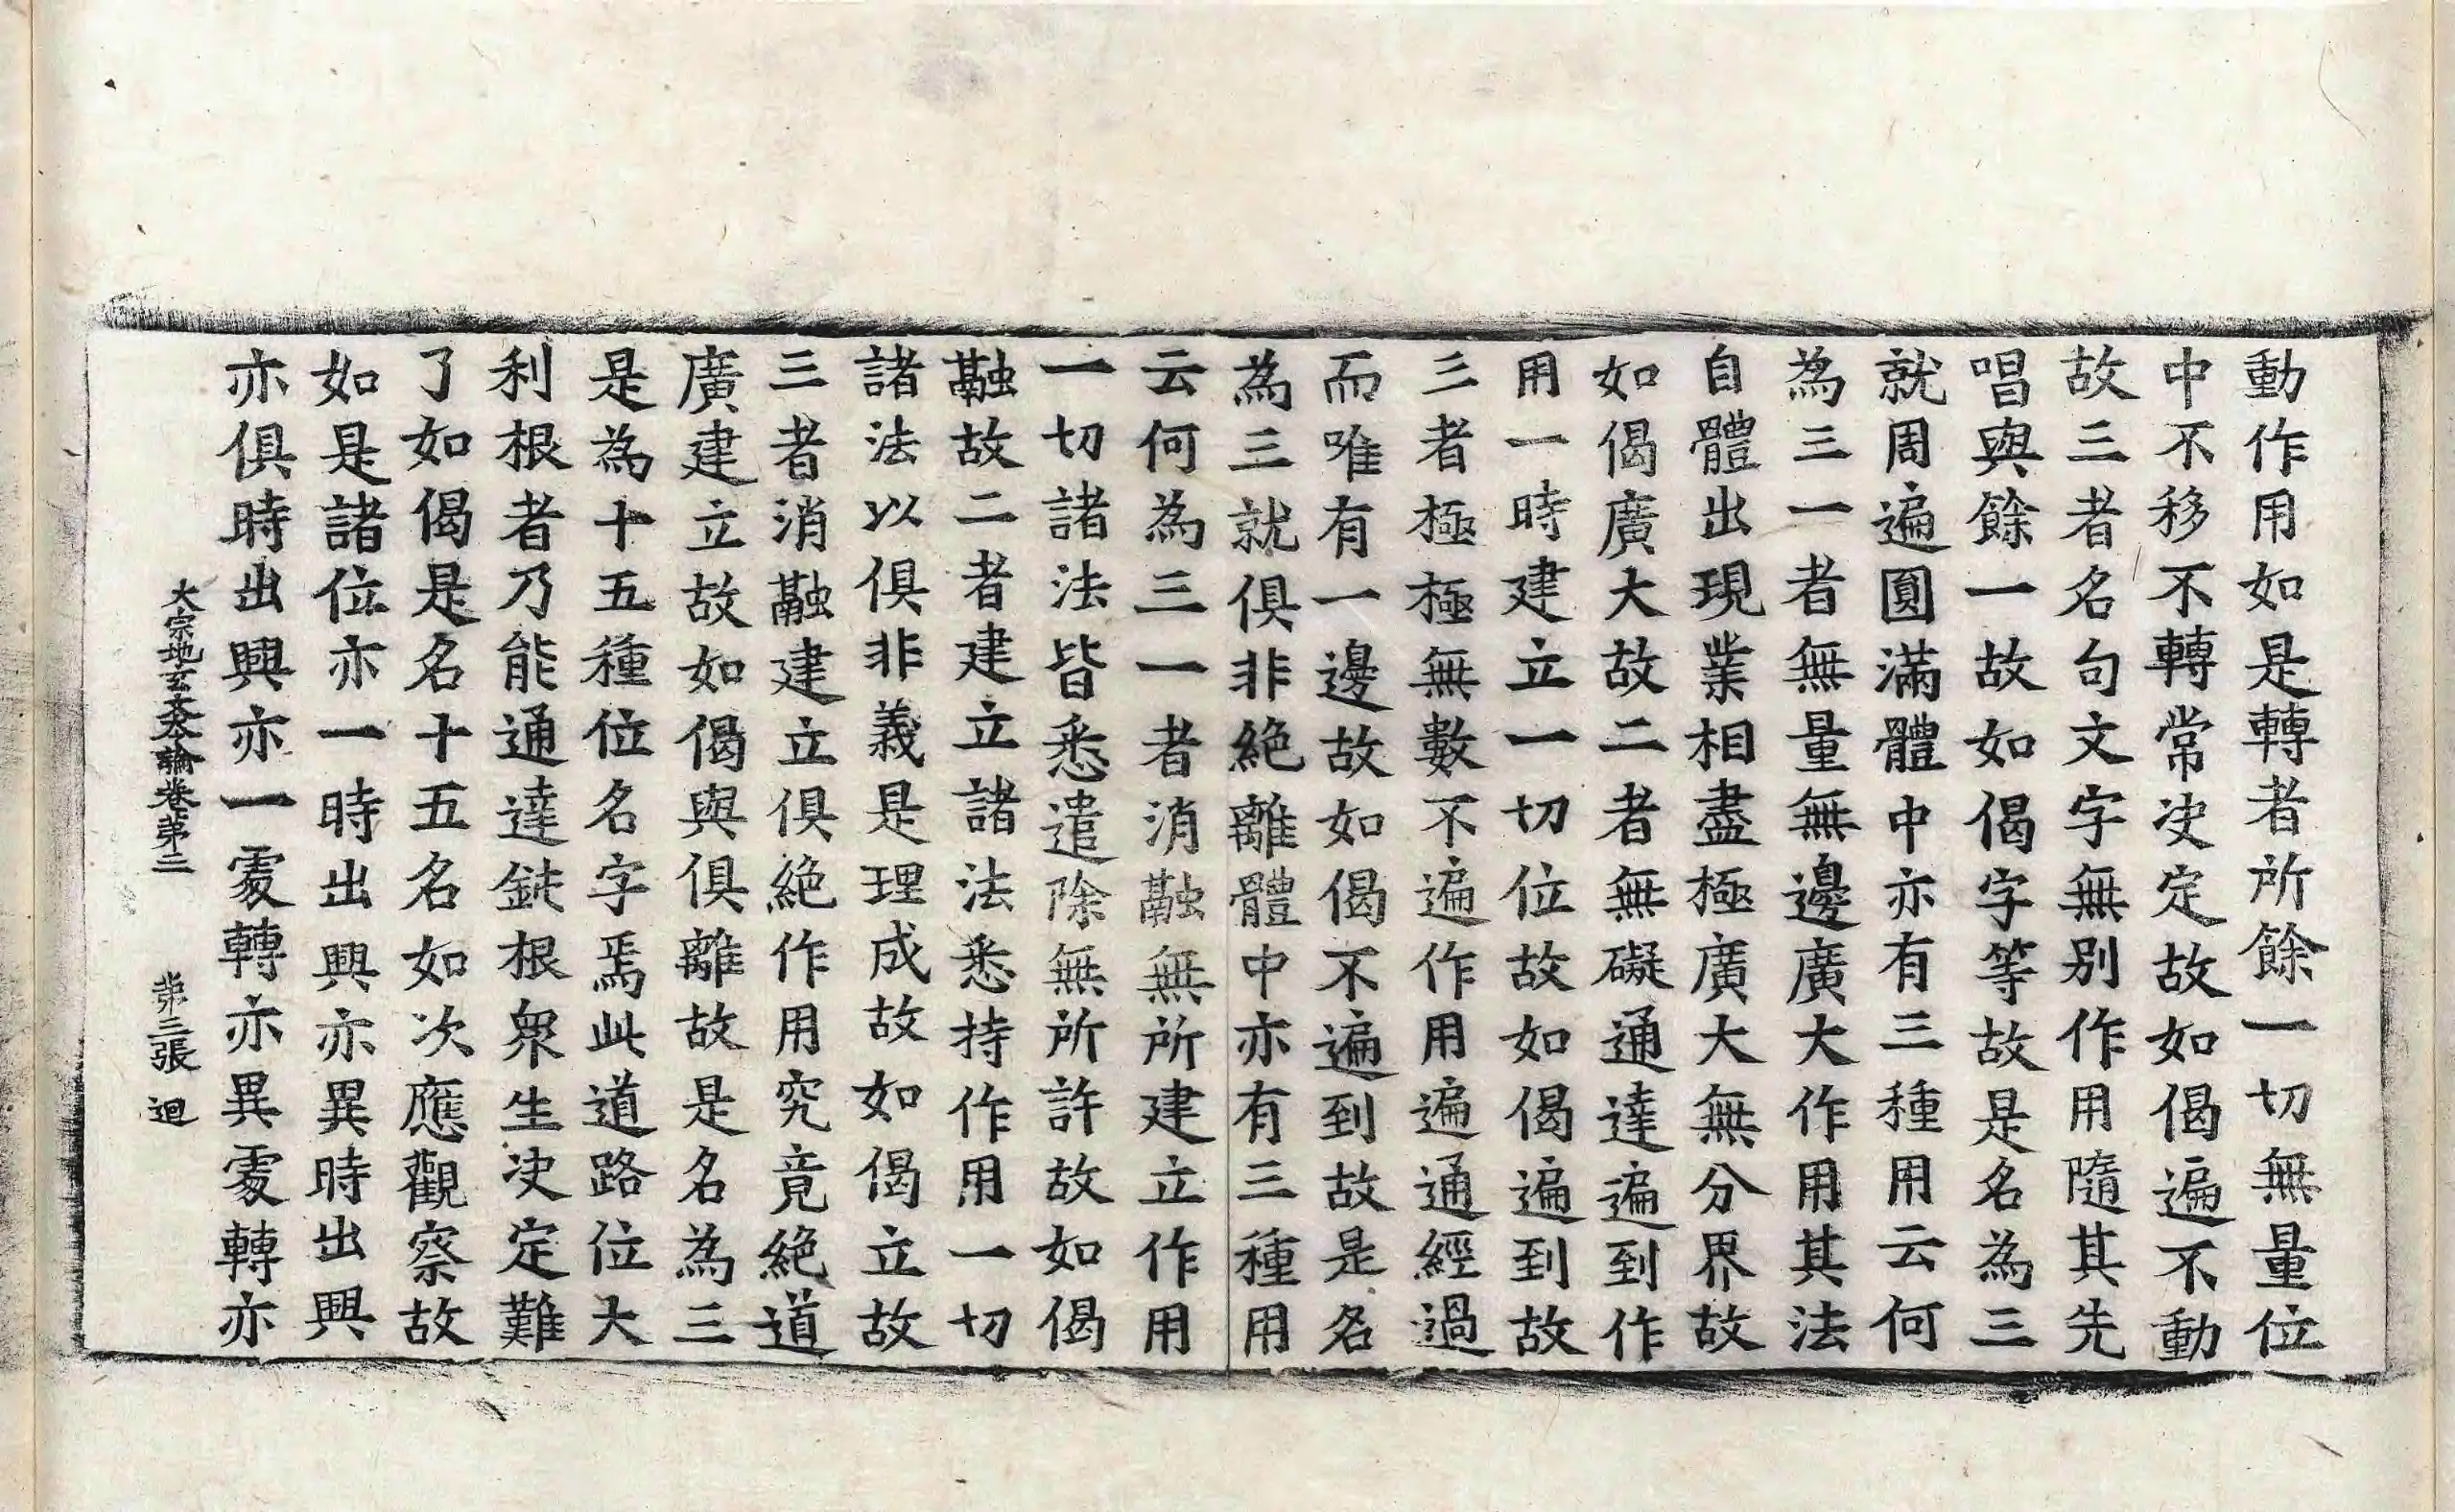 動作用如是轉者所餘一切無量位
中不移不轉常决定故如偈遍不動
故三者名句文字無别作用隨其先
唱與餘一故如偈字等故是名為三
就周遍圓滿體中亦有三種用云何
為三一者無量無邊廣大作用其法
自體出現業相盡極廣大無分界故
如偈廣大故二者無礙通達遍到作
用一時建立一切位故如偈遍到故
三者極極無數不遍作用遍通經過
而唯有一邊故如偈不遍到故是名
為三就俱非絶離體中亦有三種用
云何為三一者消融無所建立作用
一切諸法皆悉遣除無所許故如偈
融故二者建立諸法悉持作用一切
諸法以俱非義是理成故如偈立故
三者消融建立俱絶作用究竟絶道
廣建立故如偈與俱離故是名為三
是為十五種位名字焉此道路位大
利根者乃能通達鈍根衆生决定難
了如偈是名十五名如次應觀察故
如是諸位亦一時出興亦異時出興
亦俱時出興亦一處轉亦異處轉亦
大宗地玄文本論卷苐二 苐三張 迴